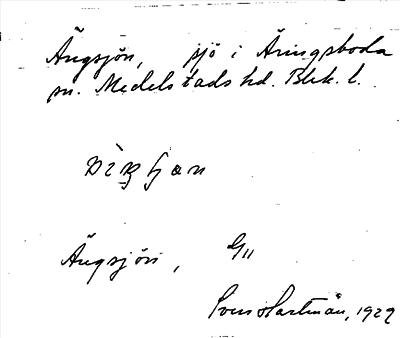 Ängsjön, sjö i Äringsboda
sn. Medelstads hd. Blek. l.
Ängsjön, Gll
Sven Hartman, 1929